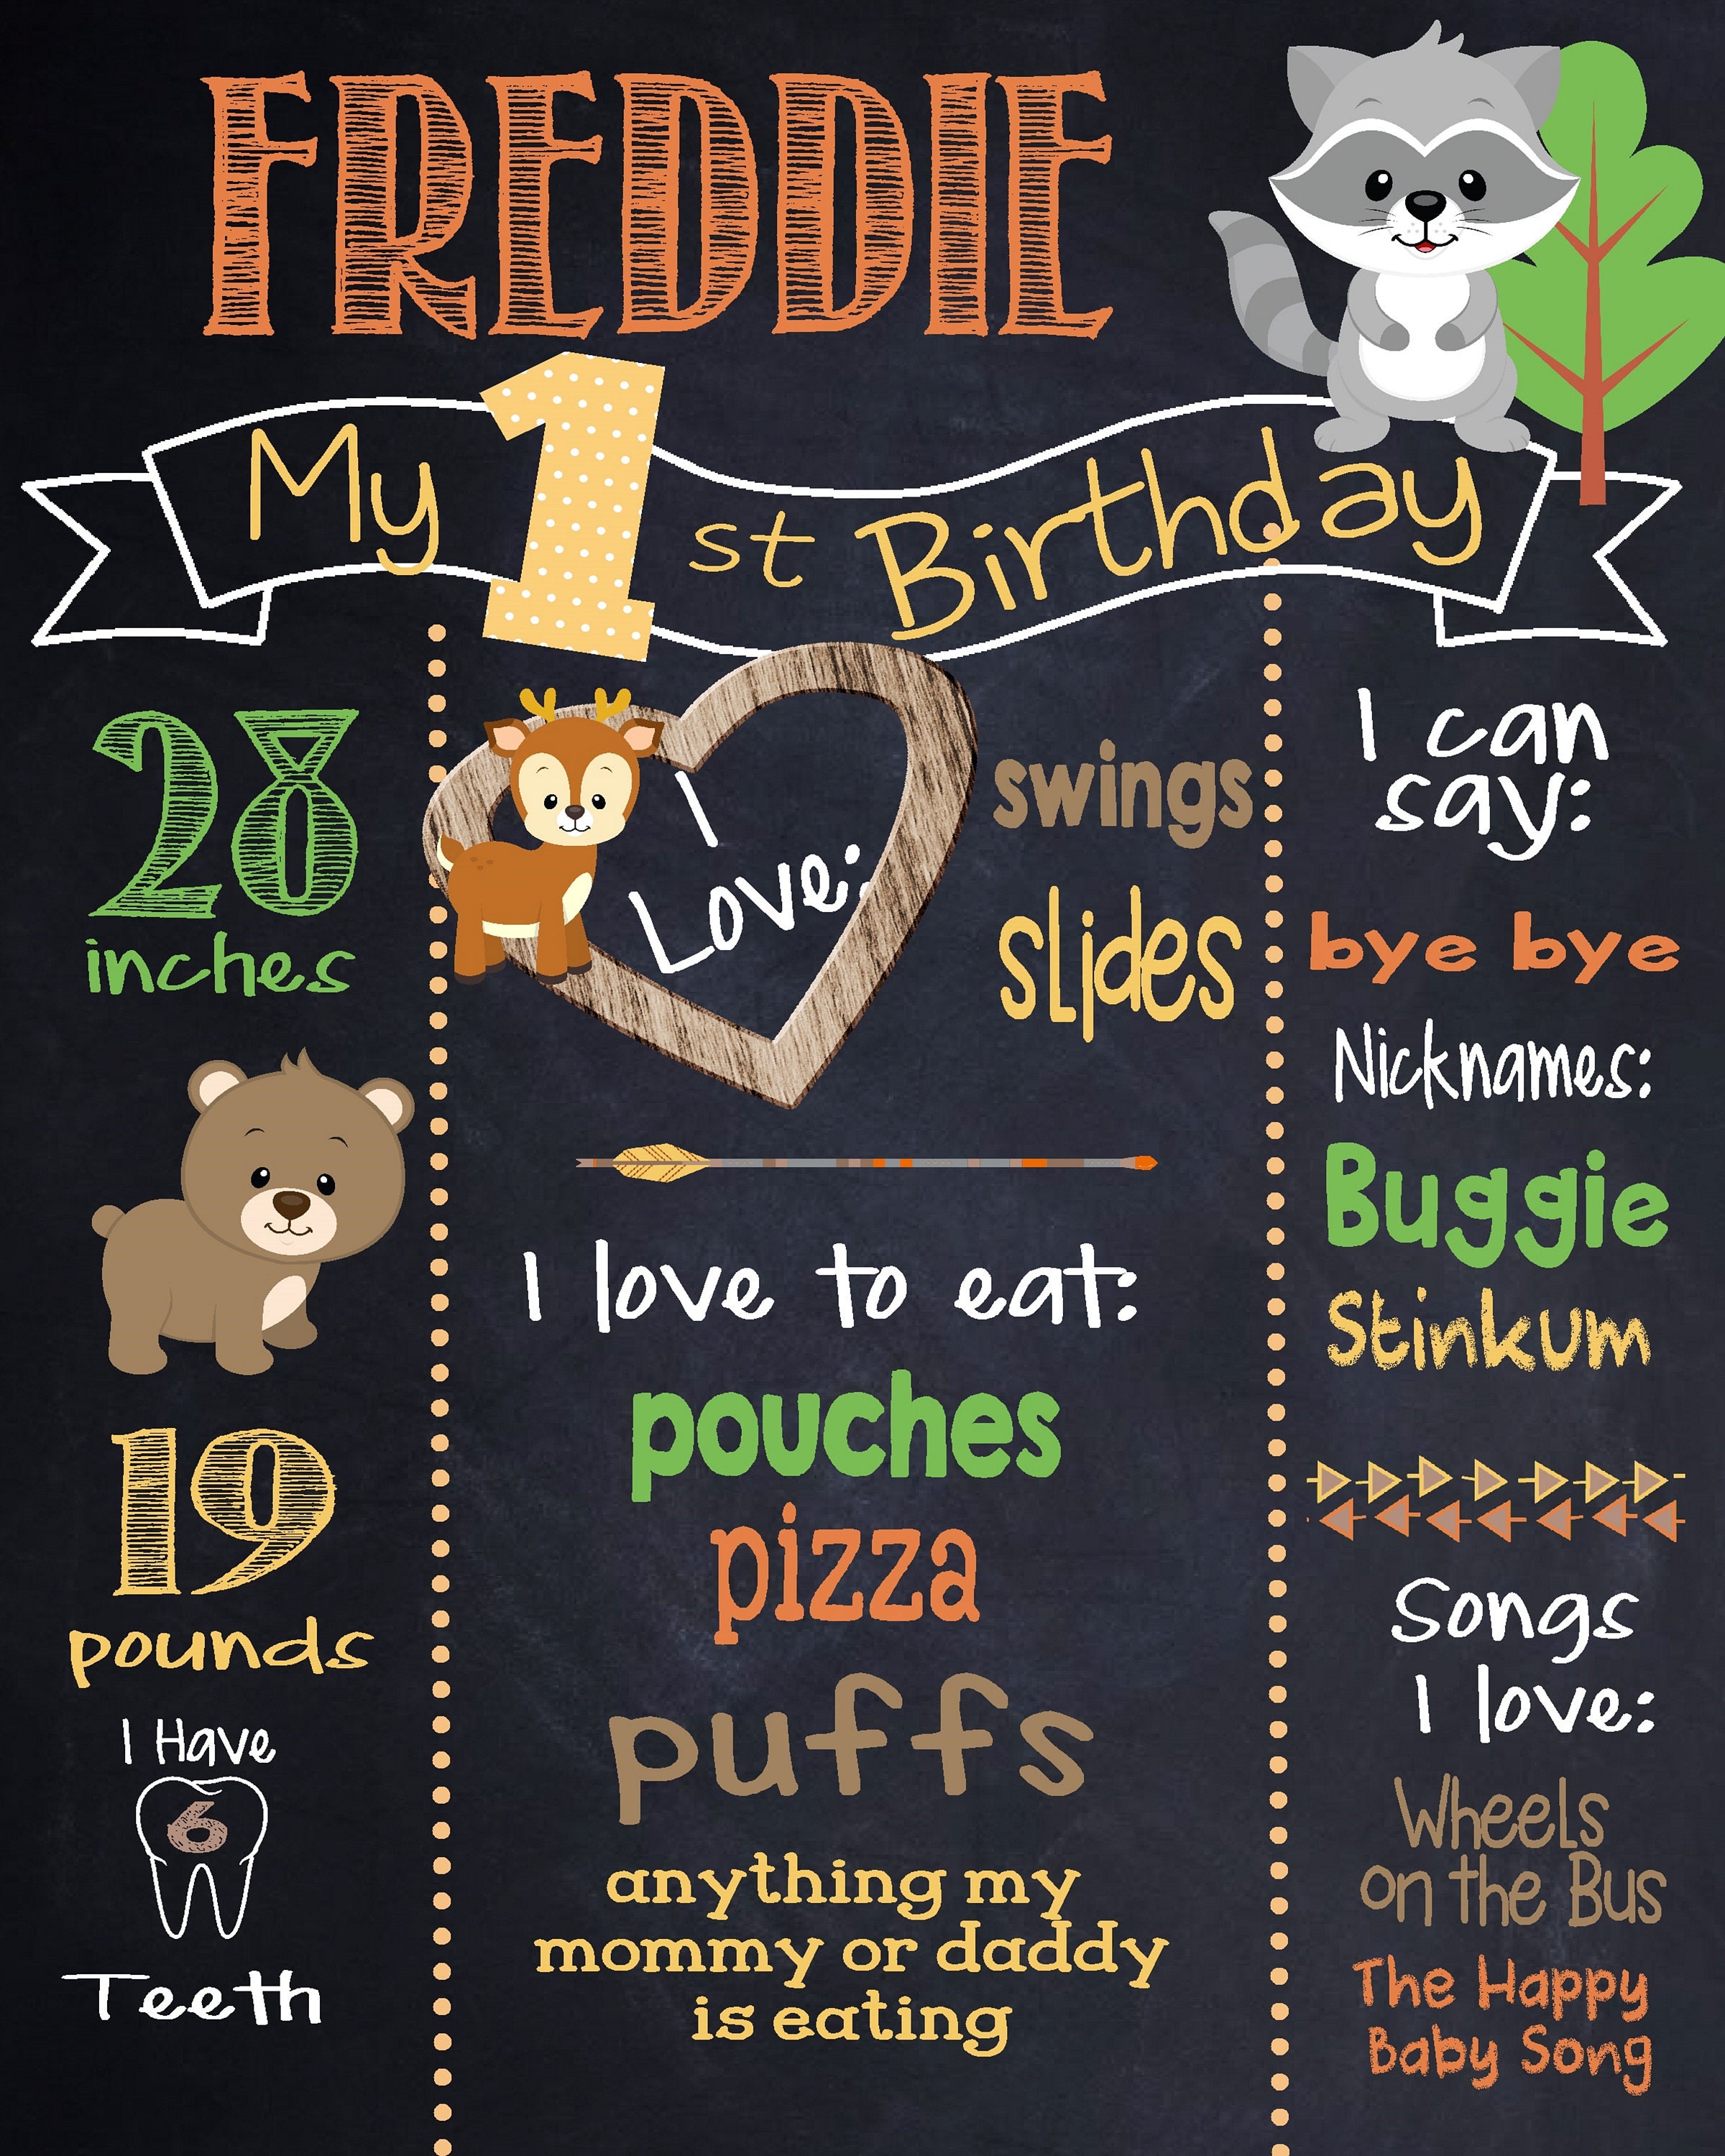 FREDDIE
My 1st Birthday
28
inches
19
pounds
I Have
6
Teeth
I
Love:
swings
slides
I love to eat:
pouches
pizza
puffs
anything my
mommy or daddy
is eating
I can
say:
bye bye
Nicknames:
Buggie
Stinkum
Songs
I love:
Wheels
on the Bus
The Happy
Baby Song